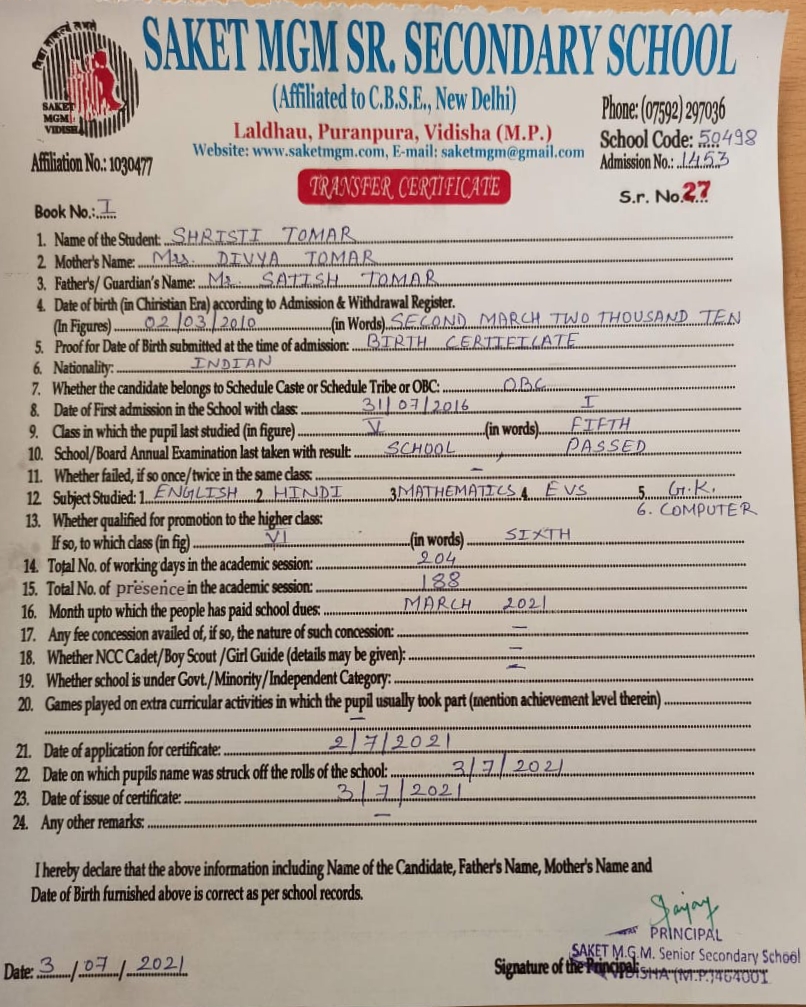 SAKET MGM SR. SECONDARY SCHOOL
(Affiliated to C.B.S.E., New Delhi)
SAKET
MGM
VIDISHA
Phone: (07592) 297036
Laldhau, Puranpura, Vidisha (M.P.)
School Code: 50498
Website: www.saketmgm.com, E-mail: saketmgm@gmail.com
Affiliation No.: 1030477
Admission No.: 1453
TRANSFER CERTIFICATE
S.r. No. 27
Book No.: I
1. Name of the Student: SHRISTI TOMAR
2. Mother's Name: Mrs. DIVYA TOMAR
3. Father's/ Guardian's Name: Mr. SATISH TOMAR
4. Date of birth (in Chiristian Era) according to Admission & Withdrawal Register.
(In Figures) 02/03/2010 (in Words) SECOND MARCH TWO THOUSAND TEN
5. Proof for Date of Birth submitted at the time of admission: BIRTH CERTIFICATE
6. Nationality: INDIAN
7. Whether the candidate belongs to Schedule Caste or Schedule Tribe or OBC: OBC
8. Date of First admission in the School with class: 31/07/2016 I
9. Class in which the pupil last studied (in figure) V (in words) FIFTH
10. School/Board Annual Examination last taken with result: SCHOOL, PASSED
11. Whether failed, if so once/twice in the same class: –
12. Subject Studied: 1. ENGLISH 2. HINDI 3. MATHEMATICS 4. EVS 5. G.K.
6. COMPUTER
13. Whether qualified for promotion to the higher class:
If so, to which class (in fig) VI (in words) SIXTH
14. Total No. of working days in the academic session: 204
15. Total No. of presence in the academic session: 188
16. Month upto which the people has paid school dues: MARCH 2021
17. Any fee concession availed of, if so, the nature of such concession: –
18. Whether NCC Cadet/Boy Scout /Girl Guide (details may be given): –
19. Whether school is under Govt./Minority/Independent Category: –
20. Games played on extra curricular activities in which the pupil usually took part (mention achievement level therein)
–
21. Date of application for certificate: 2/7/2021
22. Date on which pupils name was struck off the rolls of the school: 3/7/2021
23. Date of issue of certificate: 3/7/2021
24. Any other remarks: –
I hereby declare that the above information including Name of the Candidate, Father's Name, Mother's Name and
Date of Birth furnished above is correct as per school records.
PRINCIPAL
SAKET M.G.M. Senior Secondary School
Date: 3/07/2021
Signature of the Principal:
VIDISHA (M.P.) 464001